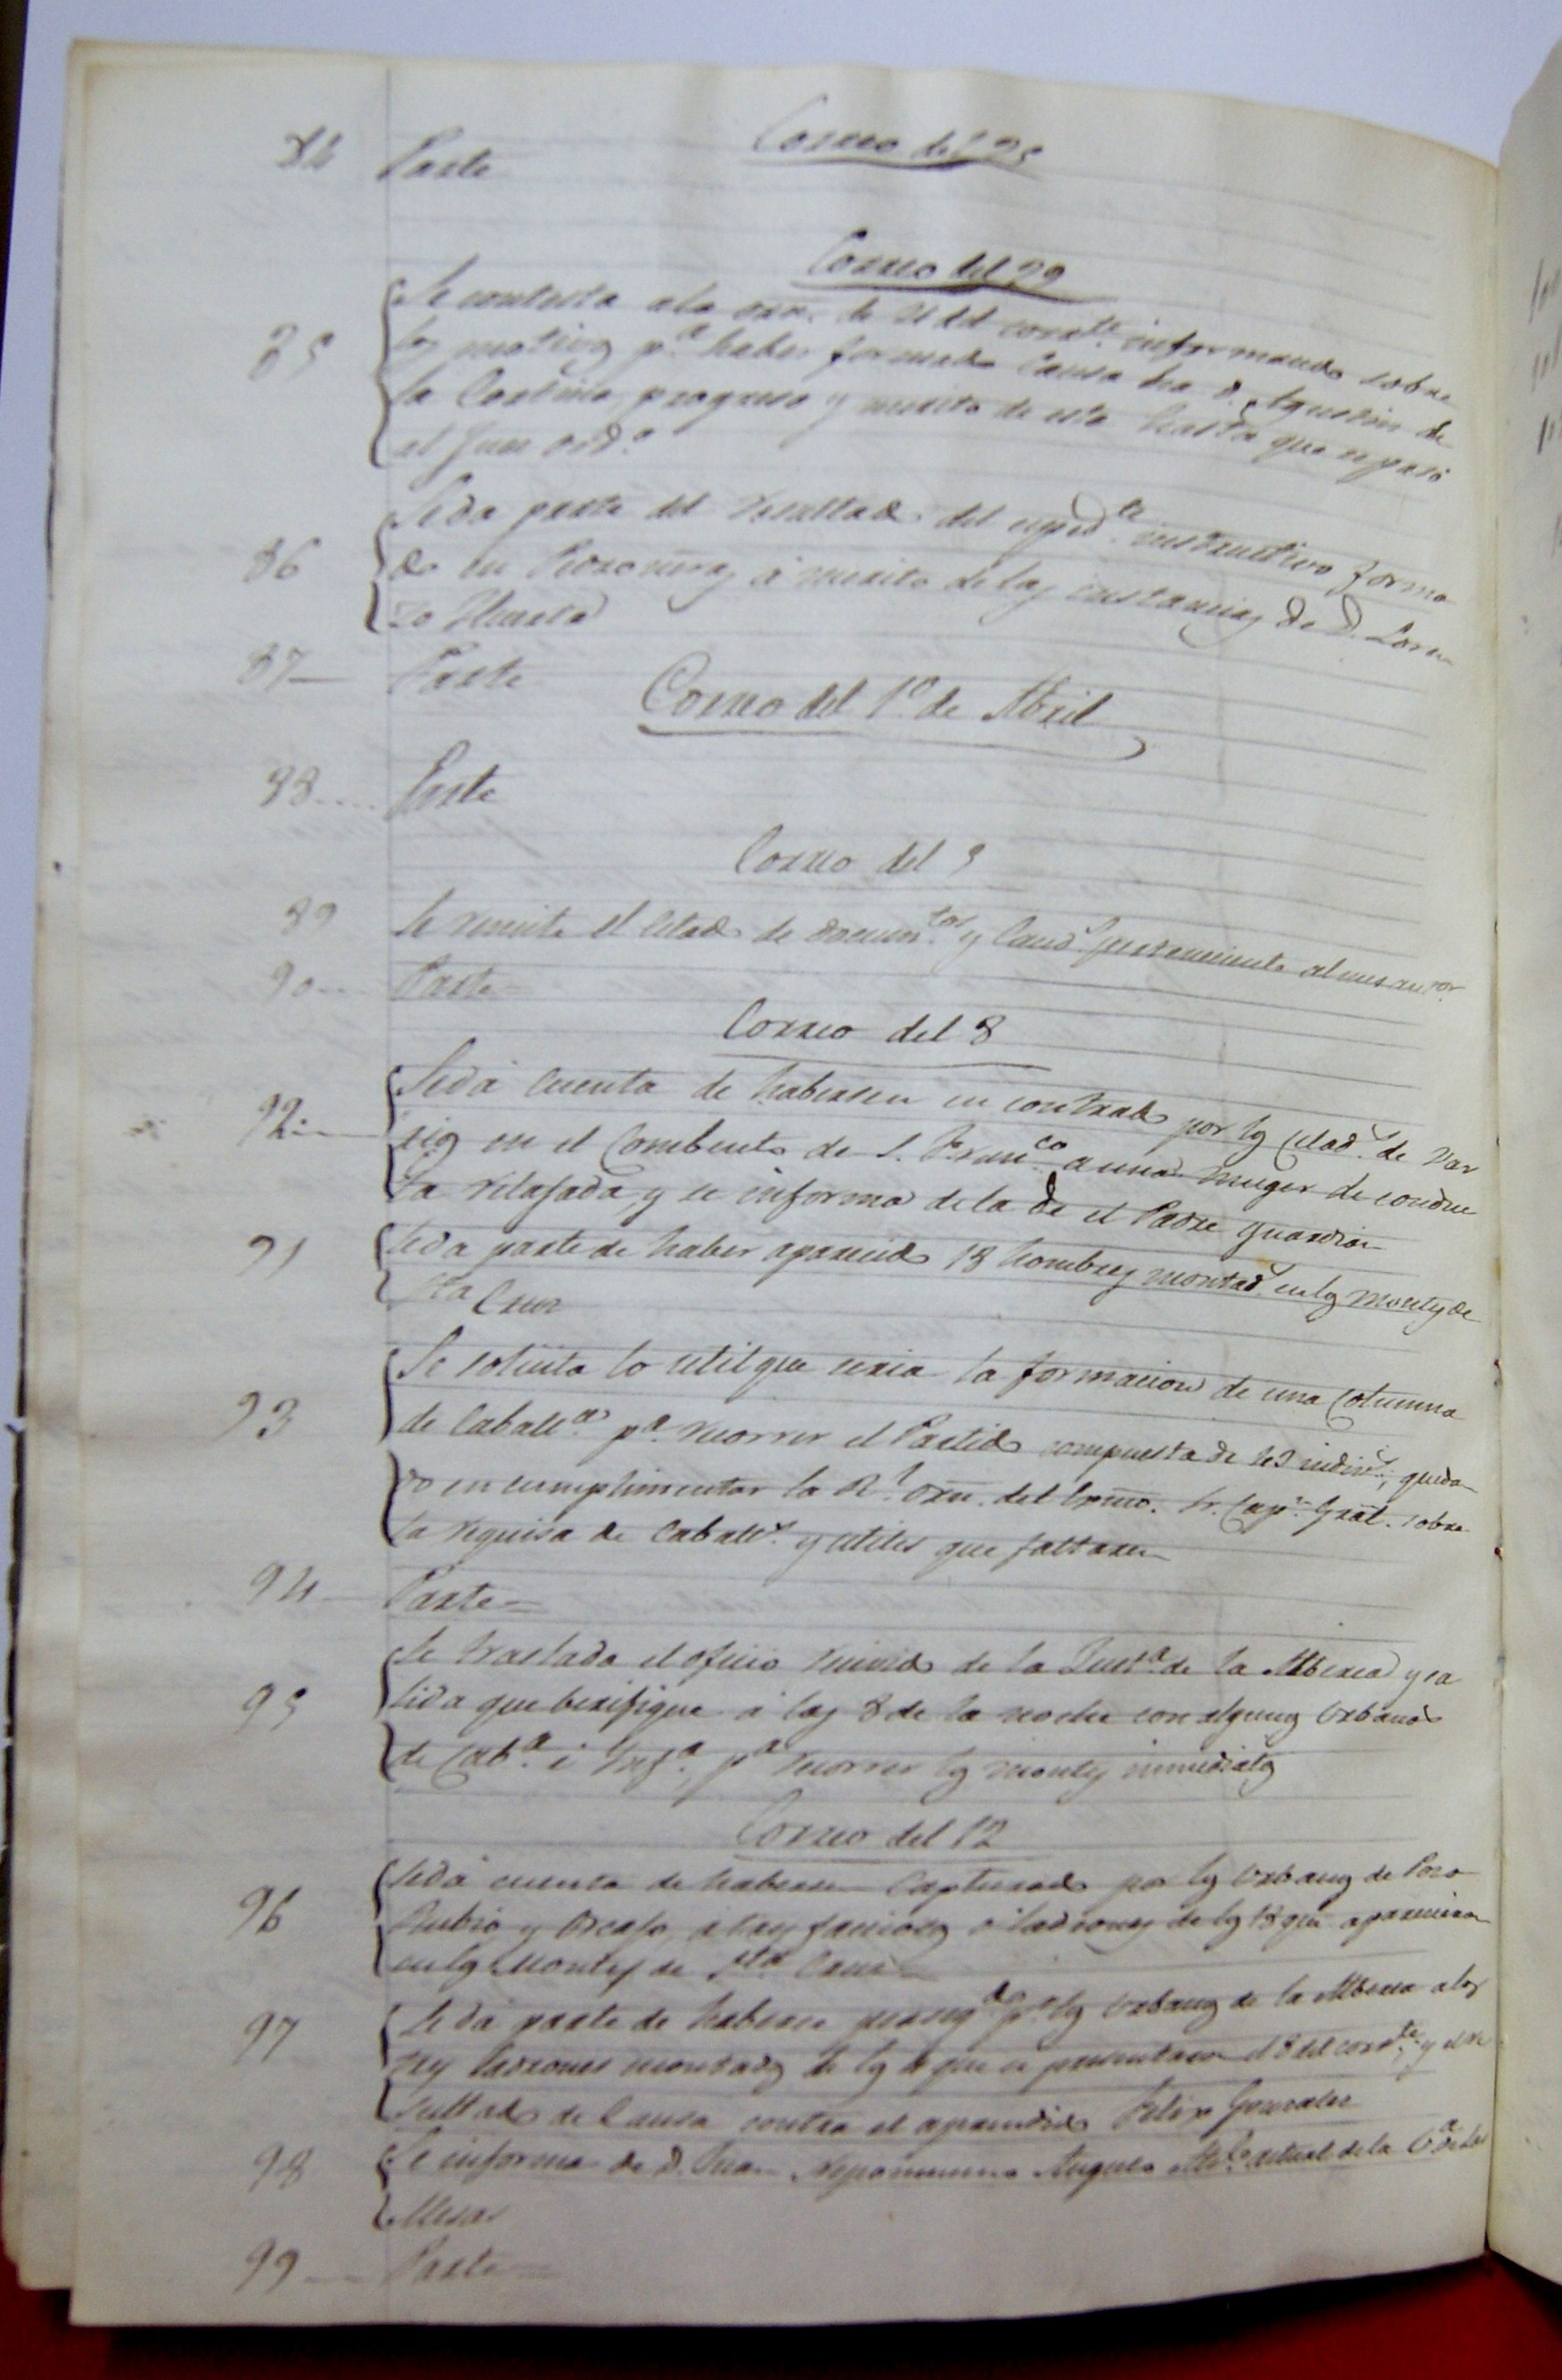 Correo del 25
84 Parte
Correo del 29
Se contesta a la orn. de 21 del corrte. informando sobre
85 los motivos pa. haber formado Causa tra D. Agustin de
la Cortina, progreso y merito de esta hasta que se pasó
al Juez ordo.
Se da parte del resultado del expedte. instructivo forma
86 do en Pedroñeras á merito de las instancias de D. Loren
zo
87 Parte
Correo del 1o. de Abril
88 Parte
Correo del 5
89 Se remite el Estado de documtos. y Caud.s perteneciente al mes antor.
90 Parte
Correo del 8
Se dá Cuenta de habersen en contrado por los Celad.s de Bar
92 rios en el Combento de S. Franco. a una muger de conduc
ta relajada, y se informa de la de el Padre Guardian
91 Se da parte de haber aparecido 18 hombres montad.s en los montes de
Sta Cruz
Se solicita lo util que seria la formacion de una Columna
93 de Caballa. pa. recorrer el Partido compuesta de individ.s; quedan
do en cumplimentar la Rl. orn. del Exmo. Sr. Capn. Gral. sobre
la requisa de Caball.s y utiles que faltaren
94 Parte
Se traslada el oficio recivido de la Justa. de la Alberca y sa
95 lida que berifique á las 8 de la noche con algunos Urbanos
de Caba. é Infa., pa. recorrer los montes inmediatos
Correo del 12
Se dá cuenta de haberse Capturado por los Urbanos de Pozo
96 Rubio y Orcajo, á tres facciosos ó ladrones de los 18 que aparecieron
en los Montes de Sta. Cruz
97 Se dá parte de haberse persegdo. pr. los Urbanos de la Alberca a los
tres ladrones montados de los que se presentaron el 8 del corrte. y el re
sultado de Causa contra el aprendido Felix Gonzalez
98 Se informa de D. Juan Nepomuceno Alce. actual de la Va. de las
Mesas
99 Parte